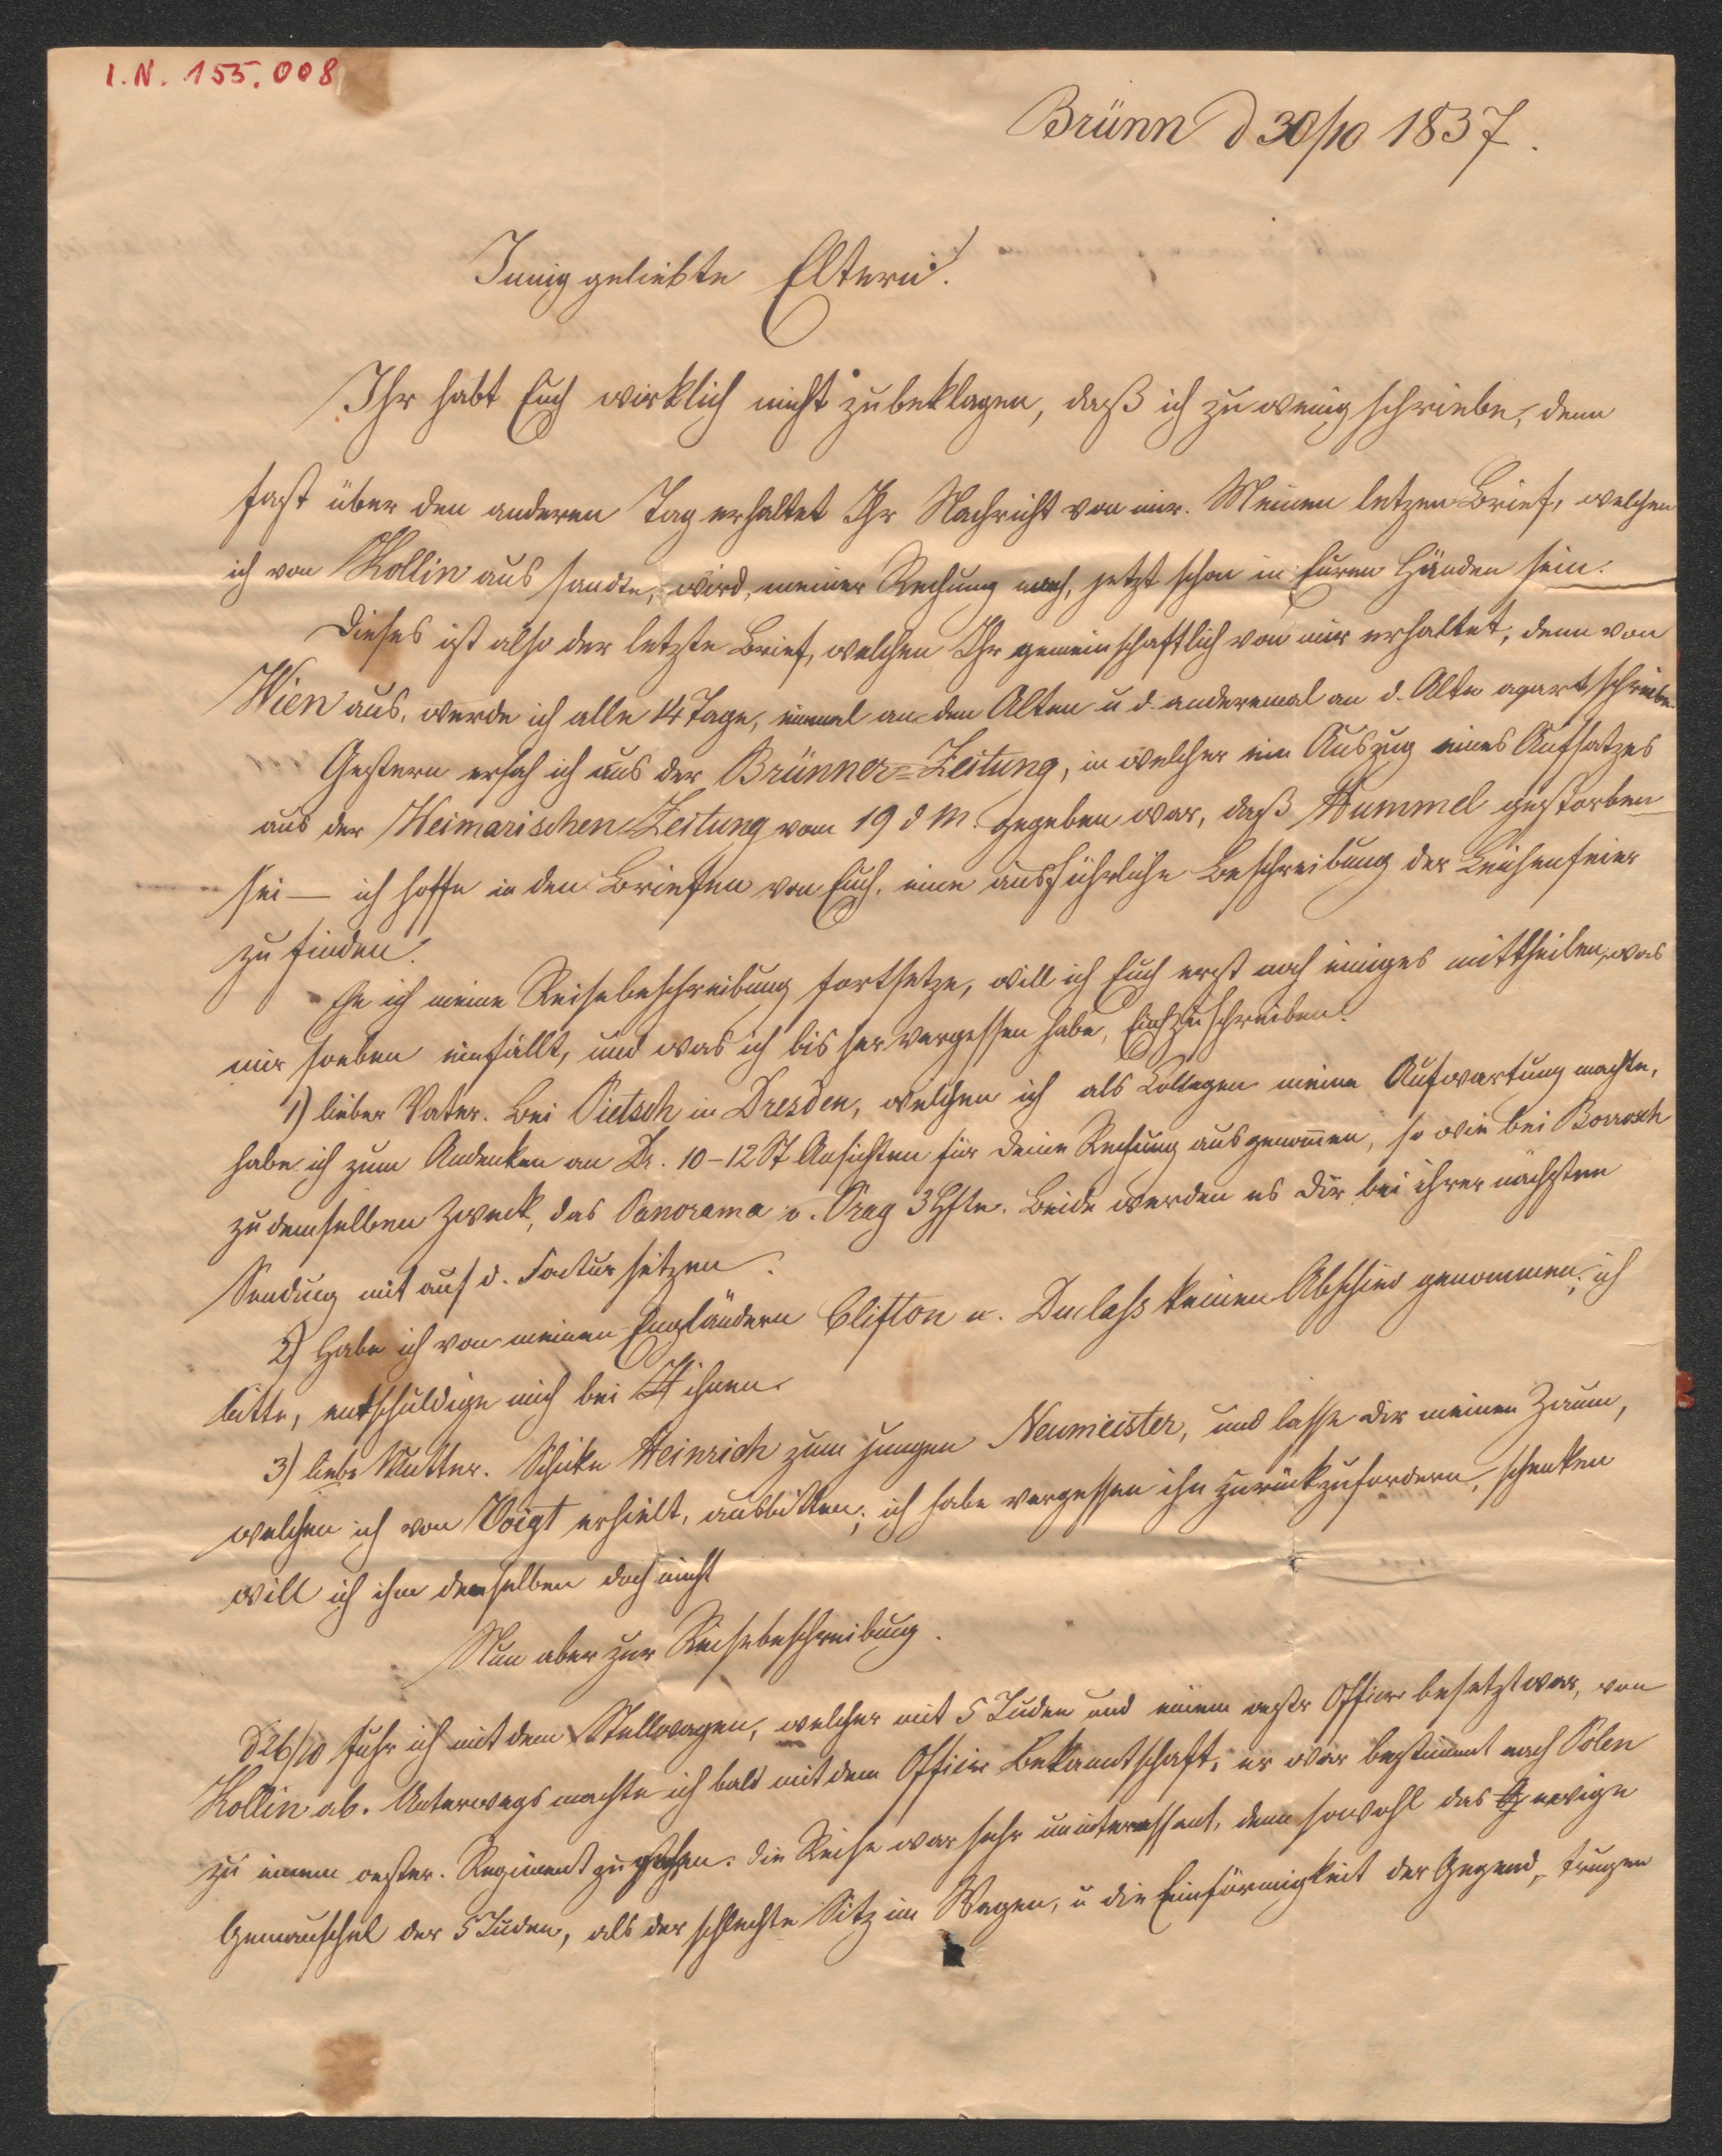 I.N. 155.008
Brünn d 30/10 1837.
Innig geliebte Eltern!
Ihr habt Euch wirklich nicht zubeklagen, daß ich zu wenig schriebe, denn
fast über den anderen Tag erhaltet Ihr Nachricht von mir. Meinen letzen Brief, welchen
ich von Kollin aus sandte, wird, meiner Rechung nach, jetzt schon in Euren Händen sein.
Dieses ist also der letzte Brief, welchen Ihr gemeinschaftlich von mir erhaltet, denn von
Wien aus, werde ich alle 14 Tage, einmal an den Alten u d. anderemal an d. Alte apart schreiben.
Gestern ersah ich aus der Brünner-Zeitung, in welcher ein Auszug eines Aufsatzes
aus der Weimarischen Zeitung vom 19 d M. gegeben war, daß Hummel gestorben
sei — ich hoffe in den Briefen von Euch, eine ausführliche Beschreibung der Leichenfeier
zu finden.
Ehe ich meine Reisebeschreibung fortsetze, will ich Euch erst noch einiges mittheilen, was
mir soeben einfällt, und was ich bis her vergessen habe, Euch zu schreiben.
1) lieber Vater. Bei Pietsch in Dresden, welchen ich als Collegen meine Aufwartung machte,
habe ich zum Andenken an Dr. 10-12 St Ansichten für deine Rechung ausgenommen, so wie bei Borrosch
zu demselben Zweck, das Panorama v. Prag 3 Hfte. Beide werden es dir bei ihrer nächsten
Sendung mit auf d. Factur setzen.
2) Habe ich von meinen Engländern Clifton u. Duclass keinen Abschied genommen, ich
bitte, entschuldige mich bei ihnen.
3) liebe Mutter. Schicke Heinrich zum jungen Neumeister, und lasse dir meinen Zaum,
welchen ich von Voigt erhielt, ausbitten; ich habe vergessen ihn zurückzufordern, schenken
will ich ihm denselben doch nicht
Nun aber zur Reisebeschreibung.
d 26/10 fuhr ich mit dem Stellwagen, welcher mit 5 Juden und einem östr Officier besetzt war, von
Kollin ab. Unterwegs machte ich bald mit dem Officier Bekanntschaft, er war bestimmt nach Polen
zu einem oester. Regiment zu gehen. Die Reise war sehr uninteressant, denn sowohl das ewige
Gemauschel der 5 Juden, als der schlechte Sitz im Wagen, u die Einförmigkeit der Gegend, trugen